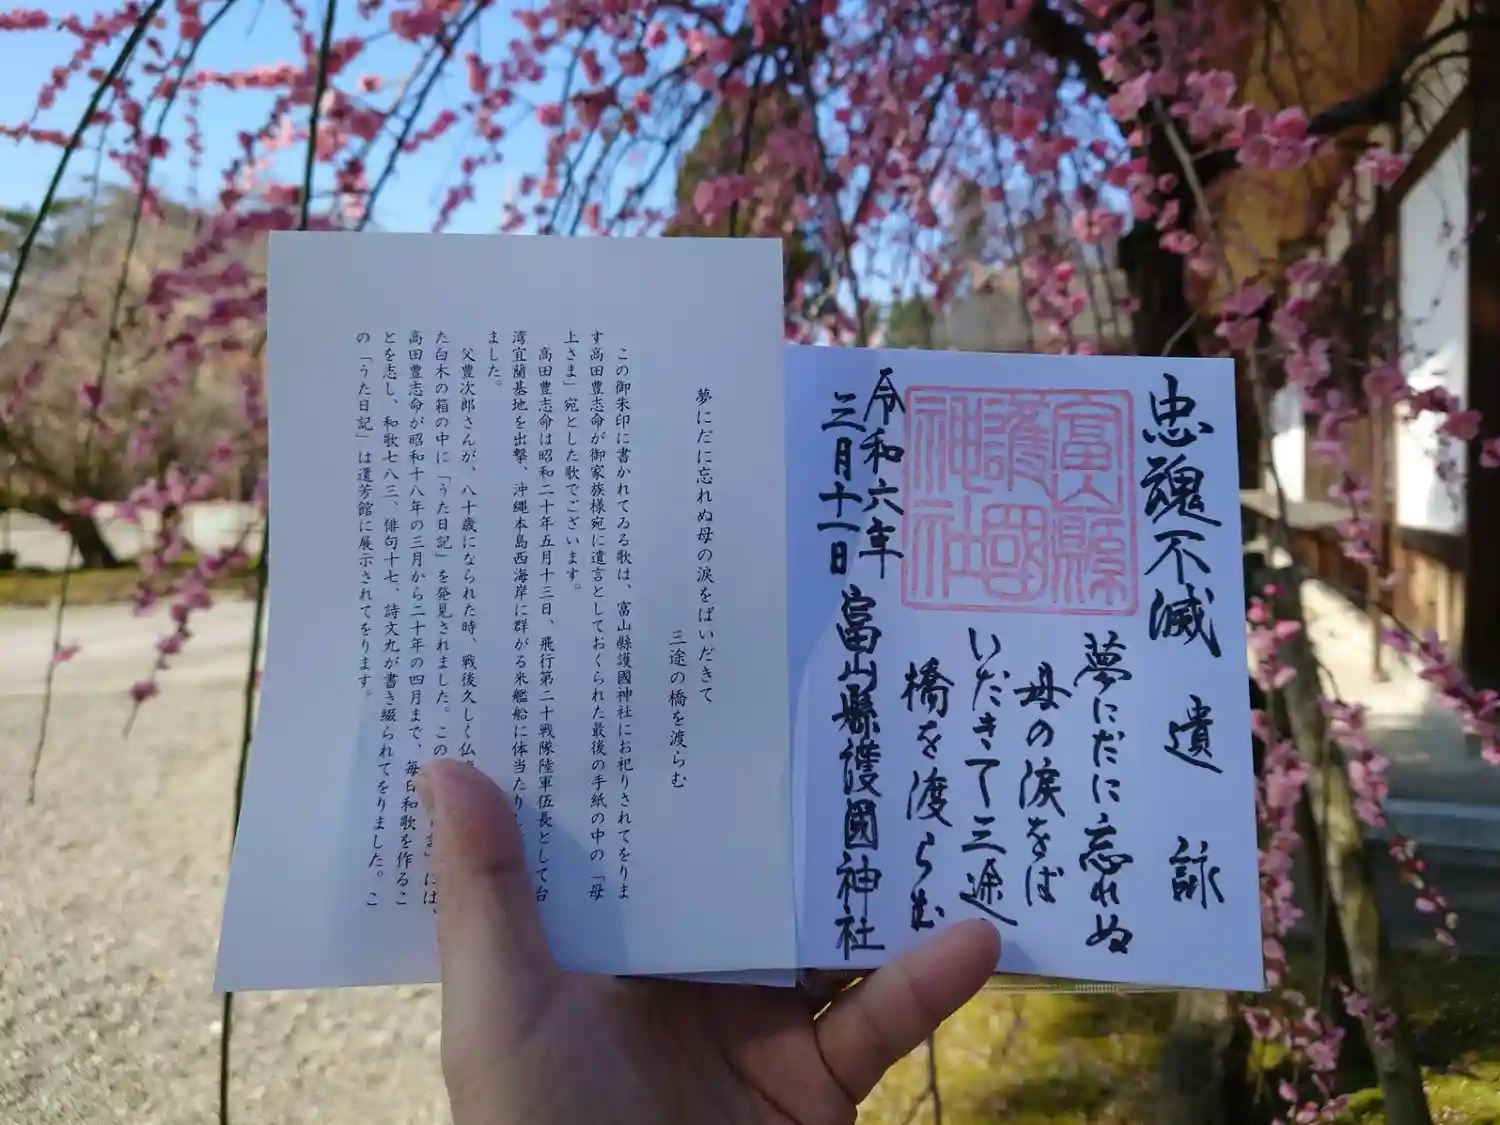 忠魂不滅 遺詠
夢にだに忘れぬ
母の涙をば
いだきて三途
橋を渡らむ
富山縣
護國
神社
令和六年
三月十一日 富山縣護國神社
夢にだに忘れぬ母の涙をばいだきて
三途の橋を渡らむ
この御朱印に書かれてゐる歌は、富山縣護國神社にお祀りされてをりま
す高田豊志命が御家族様宛に遺言としておくられた最後の手紙の中の「母
上さま」宛とした歌でございます。
高田豊志命は昭和二十年五月十三日、飛行第二十戦隊陸軍伍長として台
湾宜蘭基地を出撃、沖縄本島西海岸に群がる米艦船に体当たり
ました。
父豊次郎さんが、八十歳になられた時、戦後久しく仏
た白木の箱の中に「うた日記」を発見されました。この には、
高田豊志命が昭和十八年の三月から二十年の四月まで、毎日和歌を作るこ
とを志し、和歌七八三、俳句十七、詩文九が書き綴られてをりました。こ
の「うた日記」は遺芳館に展示されてをります。